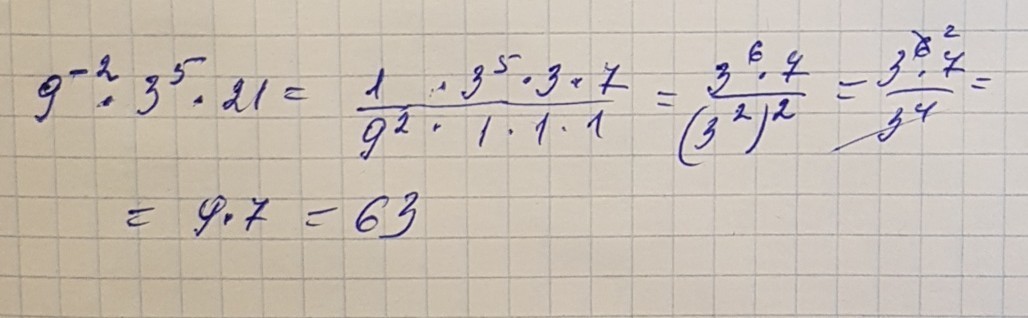 9⁻² · 3⁵ · 21 = (1 · 3⁵ · 3 · 7)/(9² · 1 · 1 · 1) = (3⁶ · 7)/(3²)² = (3⁶ ² · 7)/3⁴ =
= 9 · 7 = 63